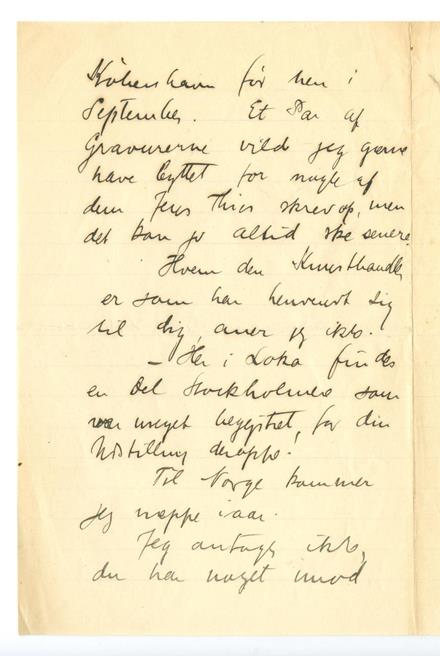 København før hen i
September. Et Par af
Gravurerne vilde jeg gerne
have byttet for nogle af
dem Jens Thiis skrev op, men
det kan jo altid ske senere.
Hvem den Kunsthandler
er som har henvendt sig
til dig, aner jeg ikke.
– Her i Loka findes
en Del Stockholmere som
var meget begejstret for din
Udstilling deroppe.
Til Norge kommer
jeg næppe iaar.
Jeg antager ikke,
du har noget imod